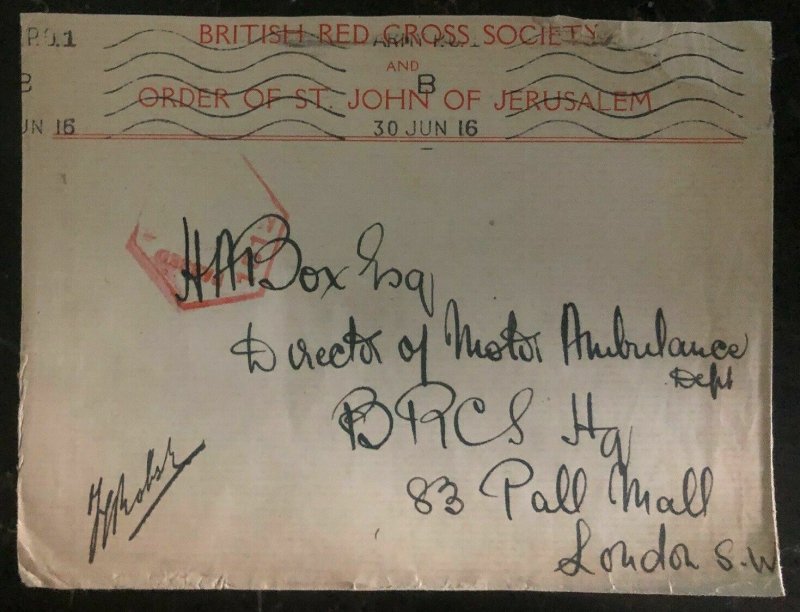 P.O.1
BRITISH RED CROSS SOCIETY
AND
B
ORDER OF ST. JOHN OF JERUSALEM
JN 16
30 JUN 16
Box Esq
Director of Motor Ambulance
Dept
BRCS Hq
83 Pall Mall
London S.W